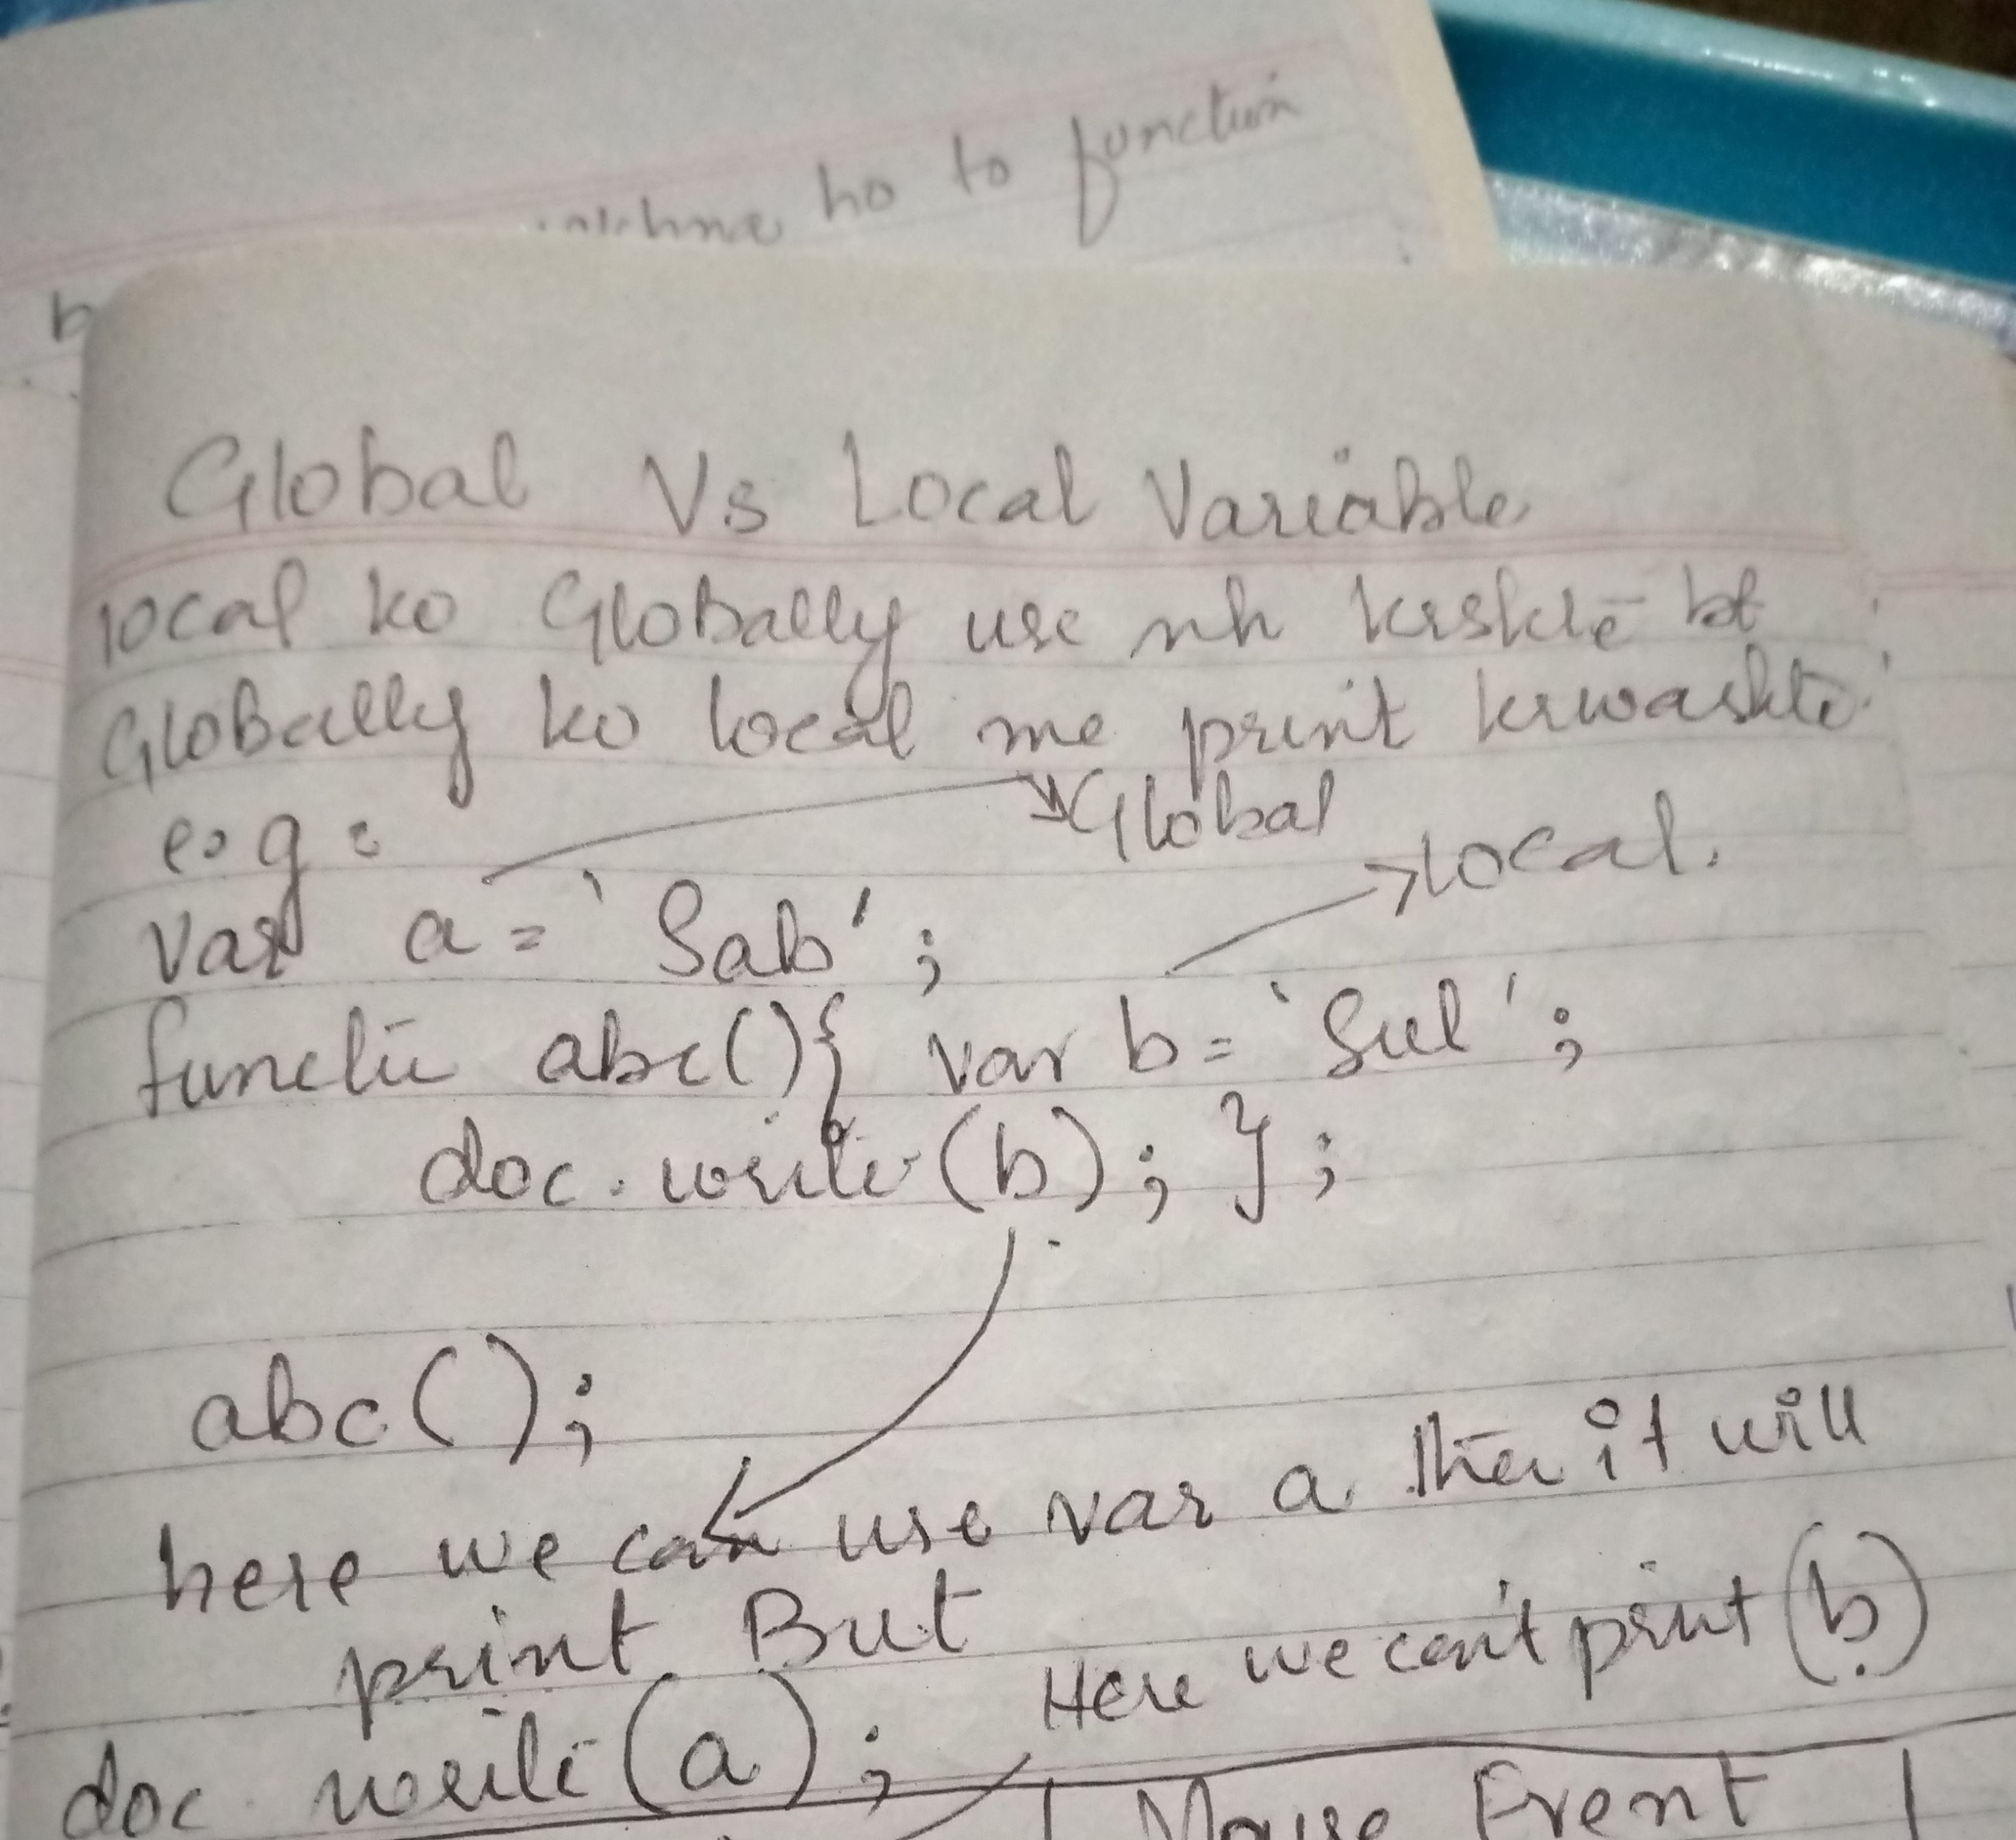 ho to function
b
Global Vs Local Variable
local ko Globally use nh krskte bt
Globally ko local me print krwaskte
e.g :
Global
local.
Var a = 'Sab' ;
function abc(){ var b = 'Sul' ;
doc.write(b); } ;
abc();
here we can use var a then it will
print. But
Here we can't print (b)
doc write(a) ;
Mouse Event